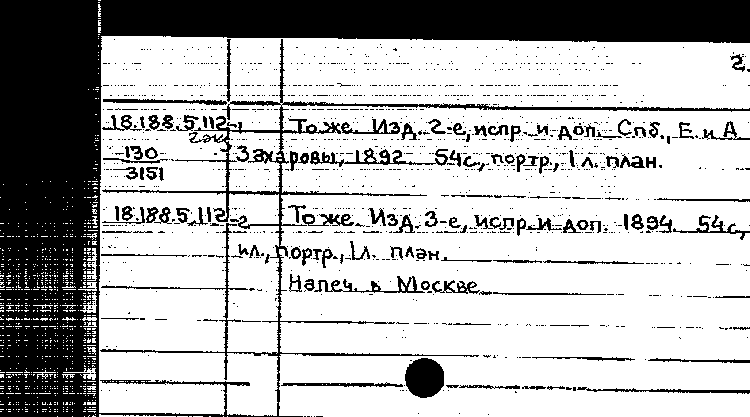 2.
18.188.5.112-1 То же. Изд. 2-е, испр. и доп. Спб., Е. и А.
2 экз
130 Захаровы, 1892. 54 с., портр., 1 л. план.
3151
18.188.5.112-2 То же. Изд. 3-е, испр. и доп. 1894. 54 с.,
ил., портр., 1 л. план.
Напеч. в Москве